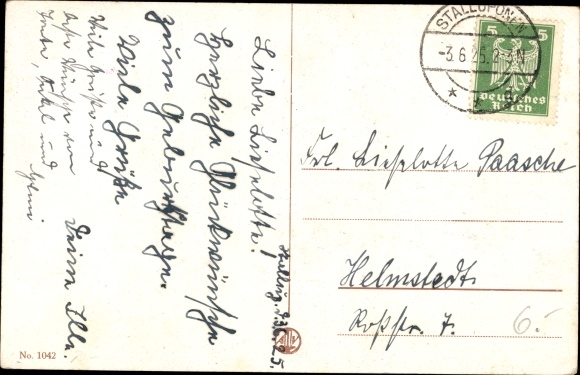 Stallup. d. 2.6.25.
Liebe Lieselotte!
Herzliche Glückwünsche
zum Geburtstage.
Viele Grüße
Deine Illa.
Viele Grüße und
beste Wünsche von
Tante, Onkel und
No. 1042
STALLUPÖNEN
-3.6.25.
5 5
Deutsches
Reich
Frl. Lieselotte Paasche
Helmstedt
Roßstr. 7.
6.-